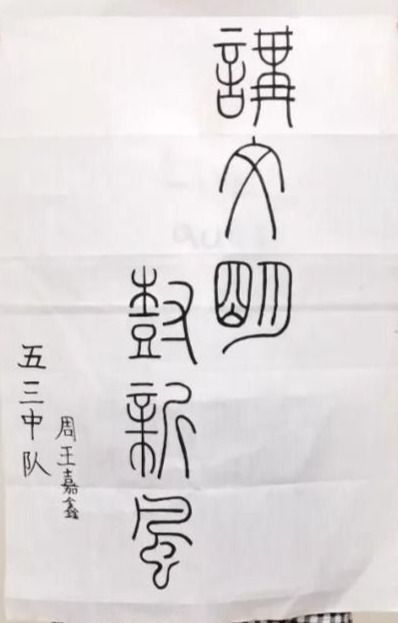 講文明
樹新風
五三中队
周王嘉鑫